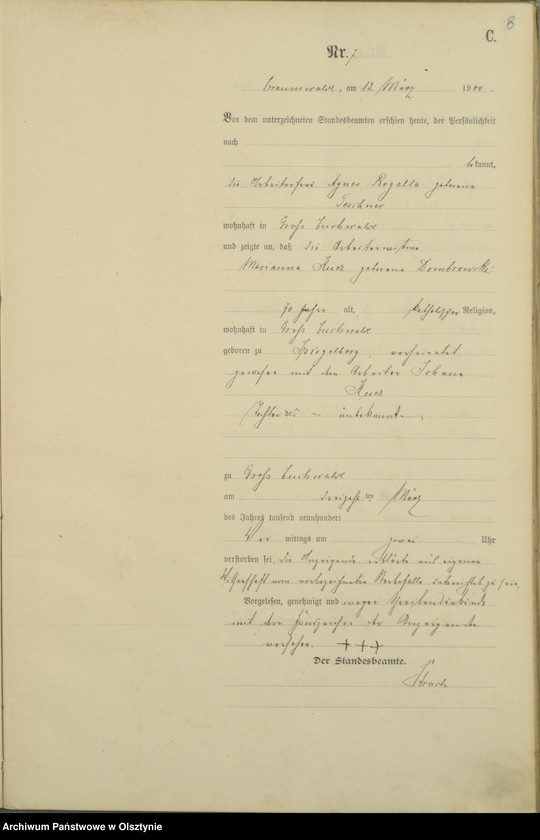 8
C.
Nr. 7
Braunswalde, am 12. März 1900.
Vor dem unterzeichneten Standesbeamten erschien heute, der Persönlichkeit
nach
bekannt,
die Arbeiterfrau Agnes Rogalla geborene
Teschner
wohnhaft in Groß Buchwalde
und zeigte an, daß die Arbeiterwittwe
Marianna geborene Dombrowski
70 Jahre alt, katholischer Religion,
wohnhaft in Groß Buchwalde
geboren zu Spiegelberg, verheirathet
gewesen mit dem Arbeiter Johann
Tochter des – unbekannt –
zu Groß Buchwalde
am ten März
des Jahres tausend neunhundert
Vor mittags um zwei Uhr
verstorben sei. Die Anzeigende erklärte aus eigener
Wissenschaft vom vorbezeichneten Sterbefalle unterrichtet zu sein.
Vorgelesen, genehmigt und wegen Schreibensunkunde
mit den Handzeichen der Anzeigende
versehen. +++
Der Standesbeamte.
Archiwum Państwowe w Olsztynie